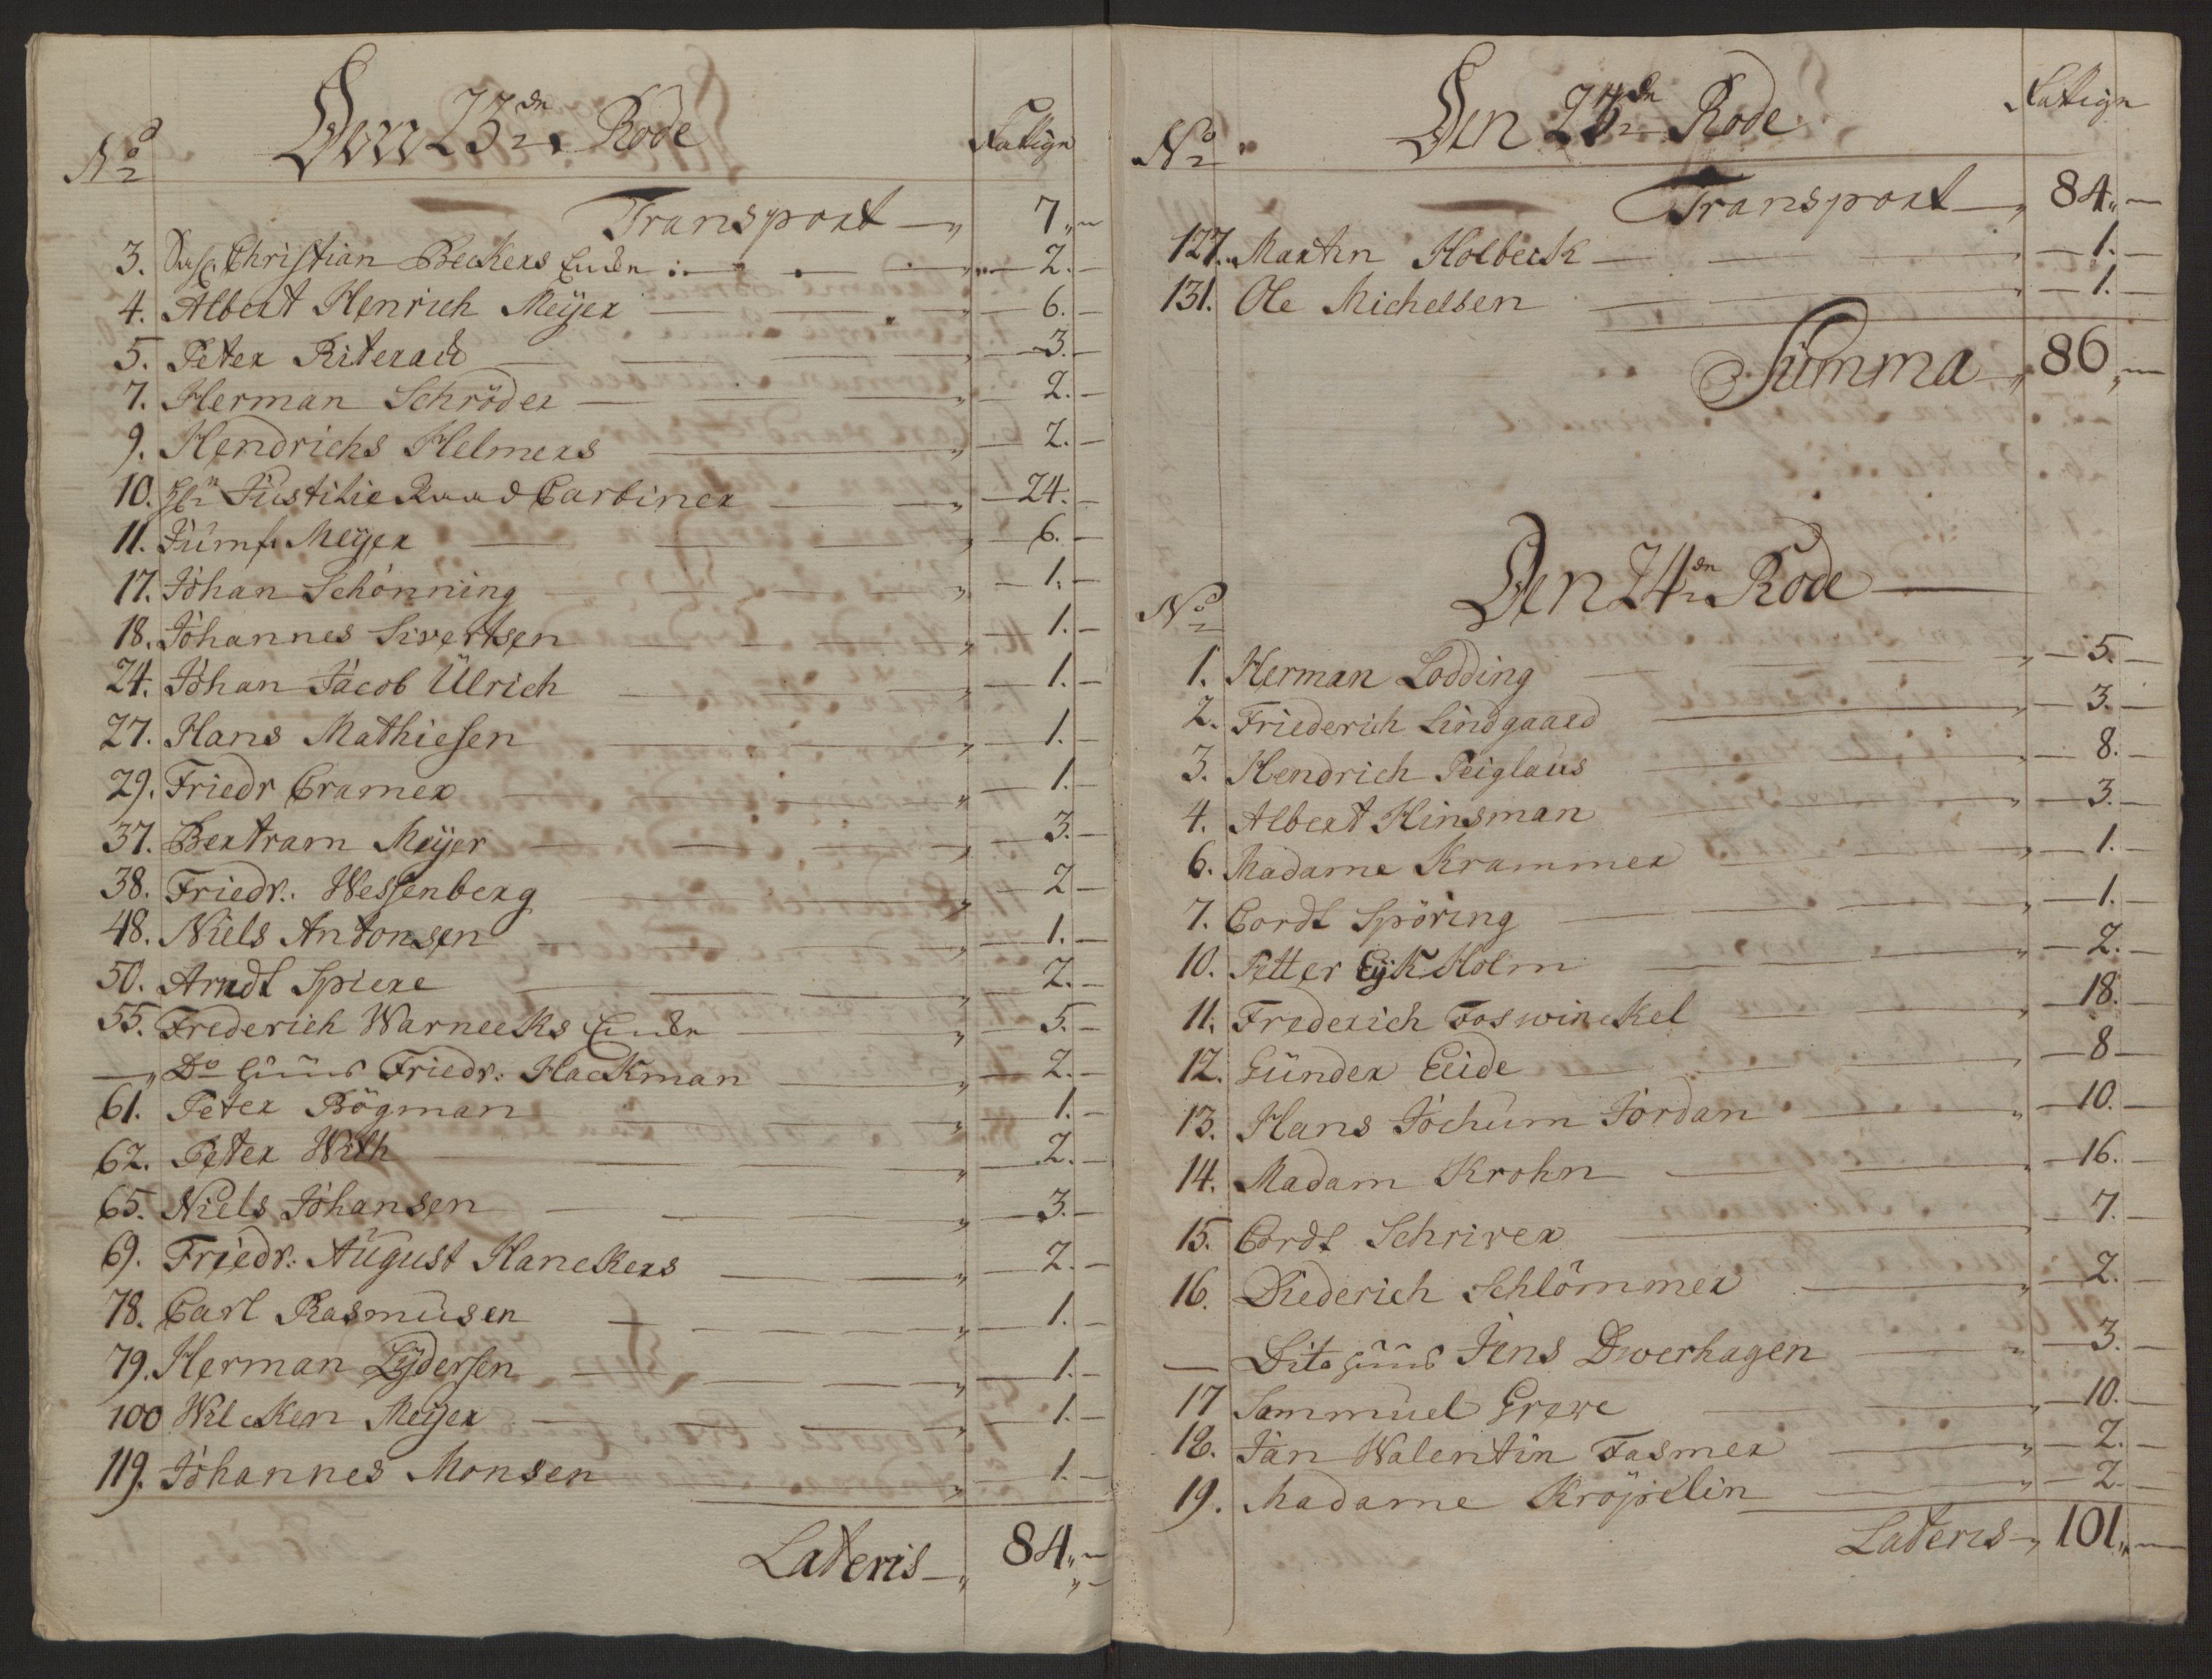 Den 23de Rode
No
Fattige
Transport 7
3. Christian Beckers Encke 2.
4. Albert Henrich Meyer 6.
5. Peter Riterad 3.
7. Herman Schröder 2.
9. Hendrichs Helmers 2.
10. Hr Justitie Raad Carbiner 24.
11. Jumfr Meyer 6.
17. Johan Schönning 1.
18. Johannes Sivertsen 1.
24. Johan Jacob Ülrich 1.
27. Hans Mathiesen 1.
29. Friedr Cramer 1.
37. Bertram Meyer 3.
38. Friedr. Wessenberg 2
48. Niels Antonsen 1.
50. Arndt Spiere 2.
55. Frederich Warneeks Encke 5.
Do Huus Friedr. Hackman 2.
61. Peter Bögman 1.
62. Peter With 2.
65. Niels Johansen 3.
69. Friedr. August Hanekers 2.
78. Carl Rasmusen 1.
79. Herman Lydersen 1.
100 Wilcken Meyer 1.
119. Johannes Monsen 1.
Lateris 84
Den 23de Rode
No
Fattige
Transport 84
127. Martin Holbeck 1.
131. Ole Michelsen 1.
Summa 86
Den 24de Rode
No
1. Herman Lodding 5.
2. Friederich Lindgaard 3.
3. Hendrich Peiglaus 8.
4. Albert Hinsman 3.
6. Madame Krammer 1.
7. Cordt Spöring 1.
10. Petter EykHolm 2.
11. Frederich Foswinckel 18.
12. Günder Eide 8
13. Hans Jochum Jordan 10.
14. Madam Krohn 16.
15. Cordt Schriver 7.
16. Diederich Schlömmer 2.
Dito Huus Jens Dwerhagen 3.
17 Sammuel Greve 10.
18. Jan Walentin Fasmer 2.
19. Madame Kröpelin 2.
Lateris 101